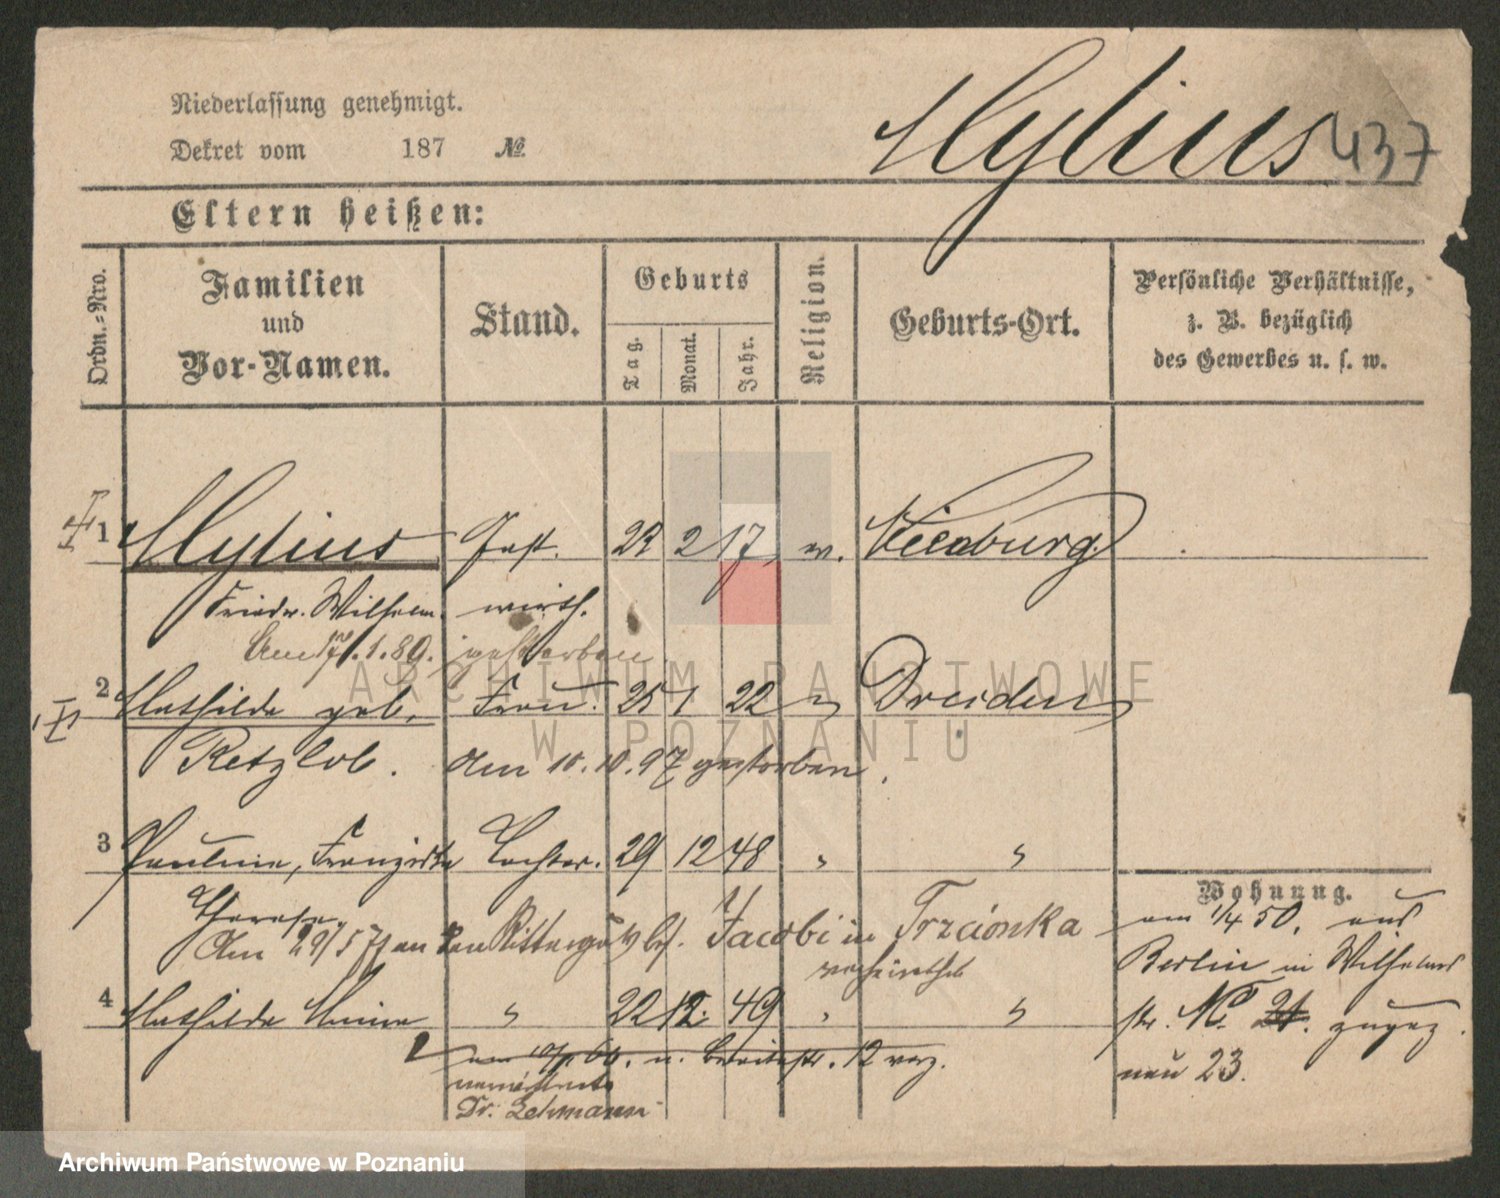 Niederlassung genehmigt.
Dekret vom 187 №
Mylius 437
Eltern heißen:
Ordn.-Nro.
Familien und Vor-Namen.
Stand.
Geburts
Tag. Monat. Jahr.
Religion.
Geburts-Ort.
Persönliche Verhältnisse,
z. B. bezüglich
des Gewerbes u. s. w.
1 Mylius Gast. 22 2 17 ev.
Friedr. Wilhelm. wirth.
Am 17.1.89. gestorben
2 Mathilde geb. Frau. 25 1 22 " Dresden
Retzlob. Am 10.10.97 gestorben.
3 Pauline, Franziska Tochter. 29 12 48 " "
Therese
Am 29/5 71 an den Rittergutsbes. Jacobi in Trzcionka
verheirathet
4 Mathilde Minna " 22 12. 49 " "
am u. 12 verz.
verwittwete
Dr. Lehmann
Wohnung.
am 1/4 50. aus
Berlin in Wilhelms
str. No 21. zugez.
neu 23.
ARCHIWUM PAŃSTWOWE
W POZNANIU
Archiwum Państwowe w Poznaniu